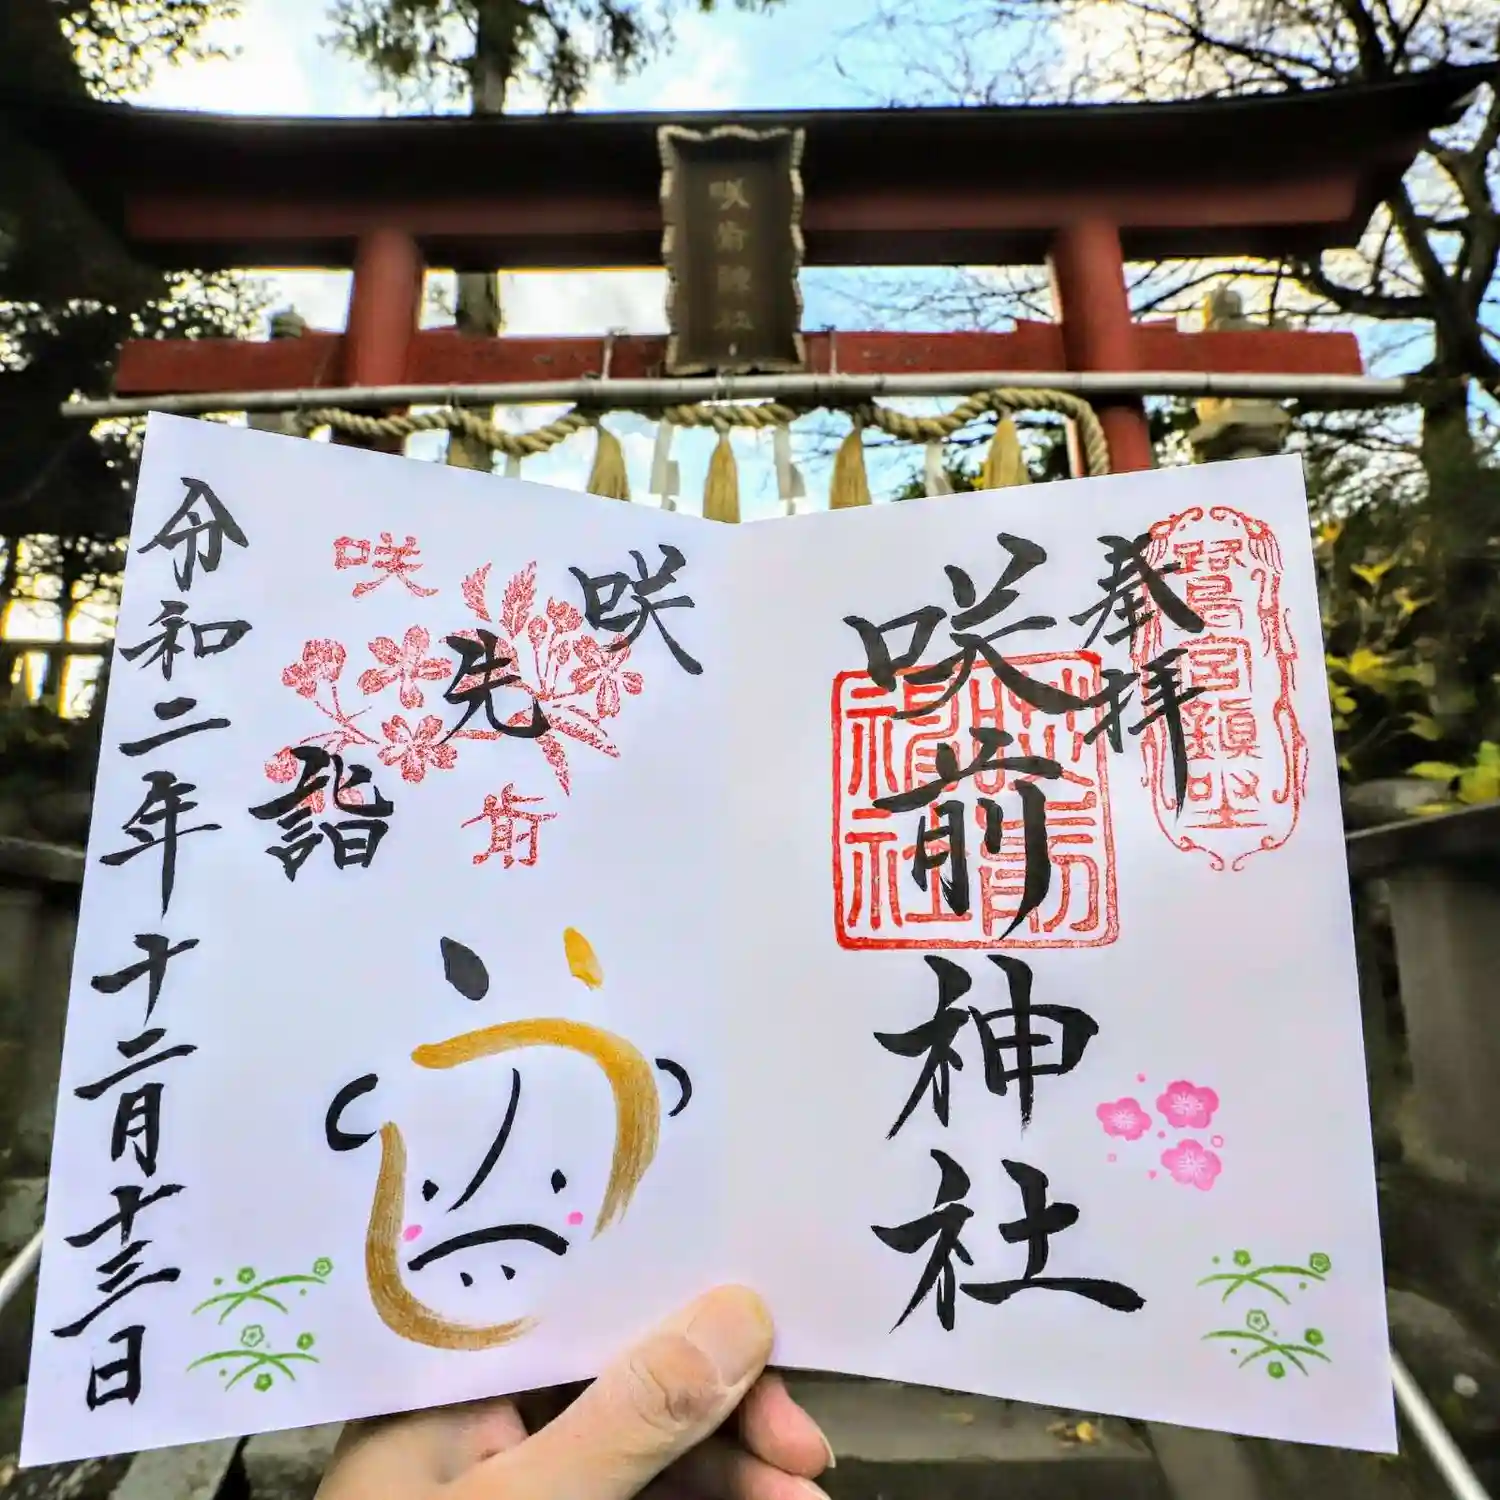 咲前神社
奉拝
鷺宮鎮坐
咲前神社
咲前神社
咲
咲
前
先
詣
令和二年十二月十三日